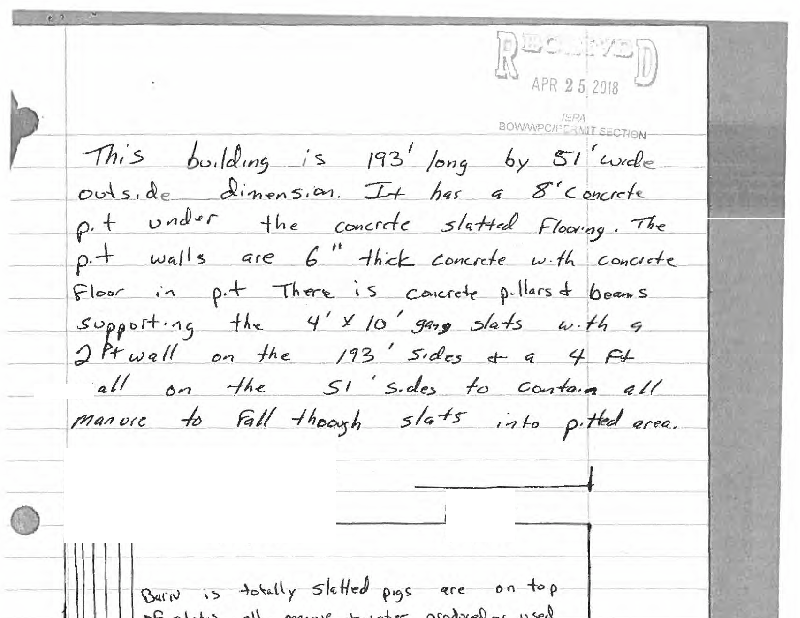 RECEIVED
APR 25 2018
IEPA
BOW/WPC/PERMIT SECTION
This building is 193' long by 51' wide
outside dimension. It has a 8' Concrete
pit under the concrete slatted flooring. The
pit walls are 6" thick concrete with concrete
Floor in pit There is concrete pillars & beams
supporting the 4' X 10' gang slats with a
2 Ft wall on the 193' sides & a 4 Ft
all on the 51' sides to contain all
manure to fall though slats into pitted area.
Barn is totally slatted pigs are on top
of slats all manure & water produced or used